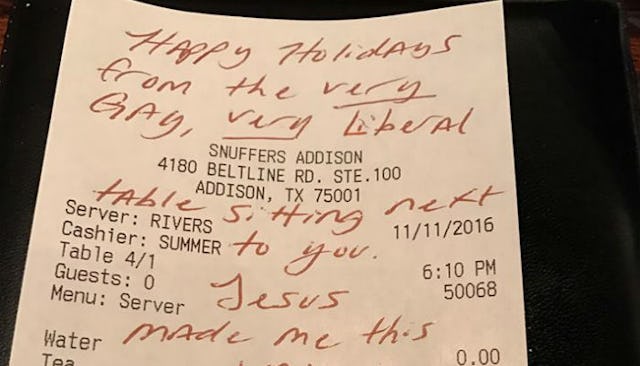 Happy Holidays
from the very
Gay, very Liberal
SNUFFERS ADDISON
4180 BELTLINE RD. STE.100
ADDISON, TX 75001
table sitting next
Server: RIVERS 11/11/2016
Cashier: SUMMER to you.
Table 4/1 6:10 PM
Guests: 0 50068
Menu: Server Jesus
made me this
Water 0.00
Tea